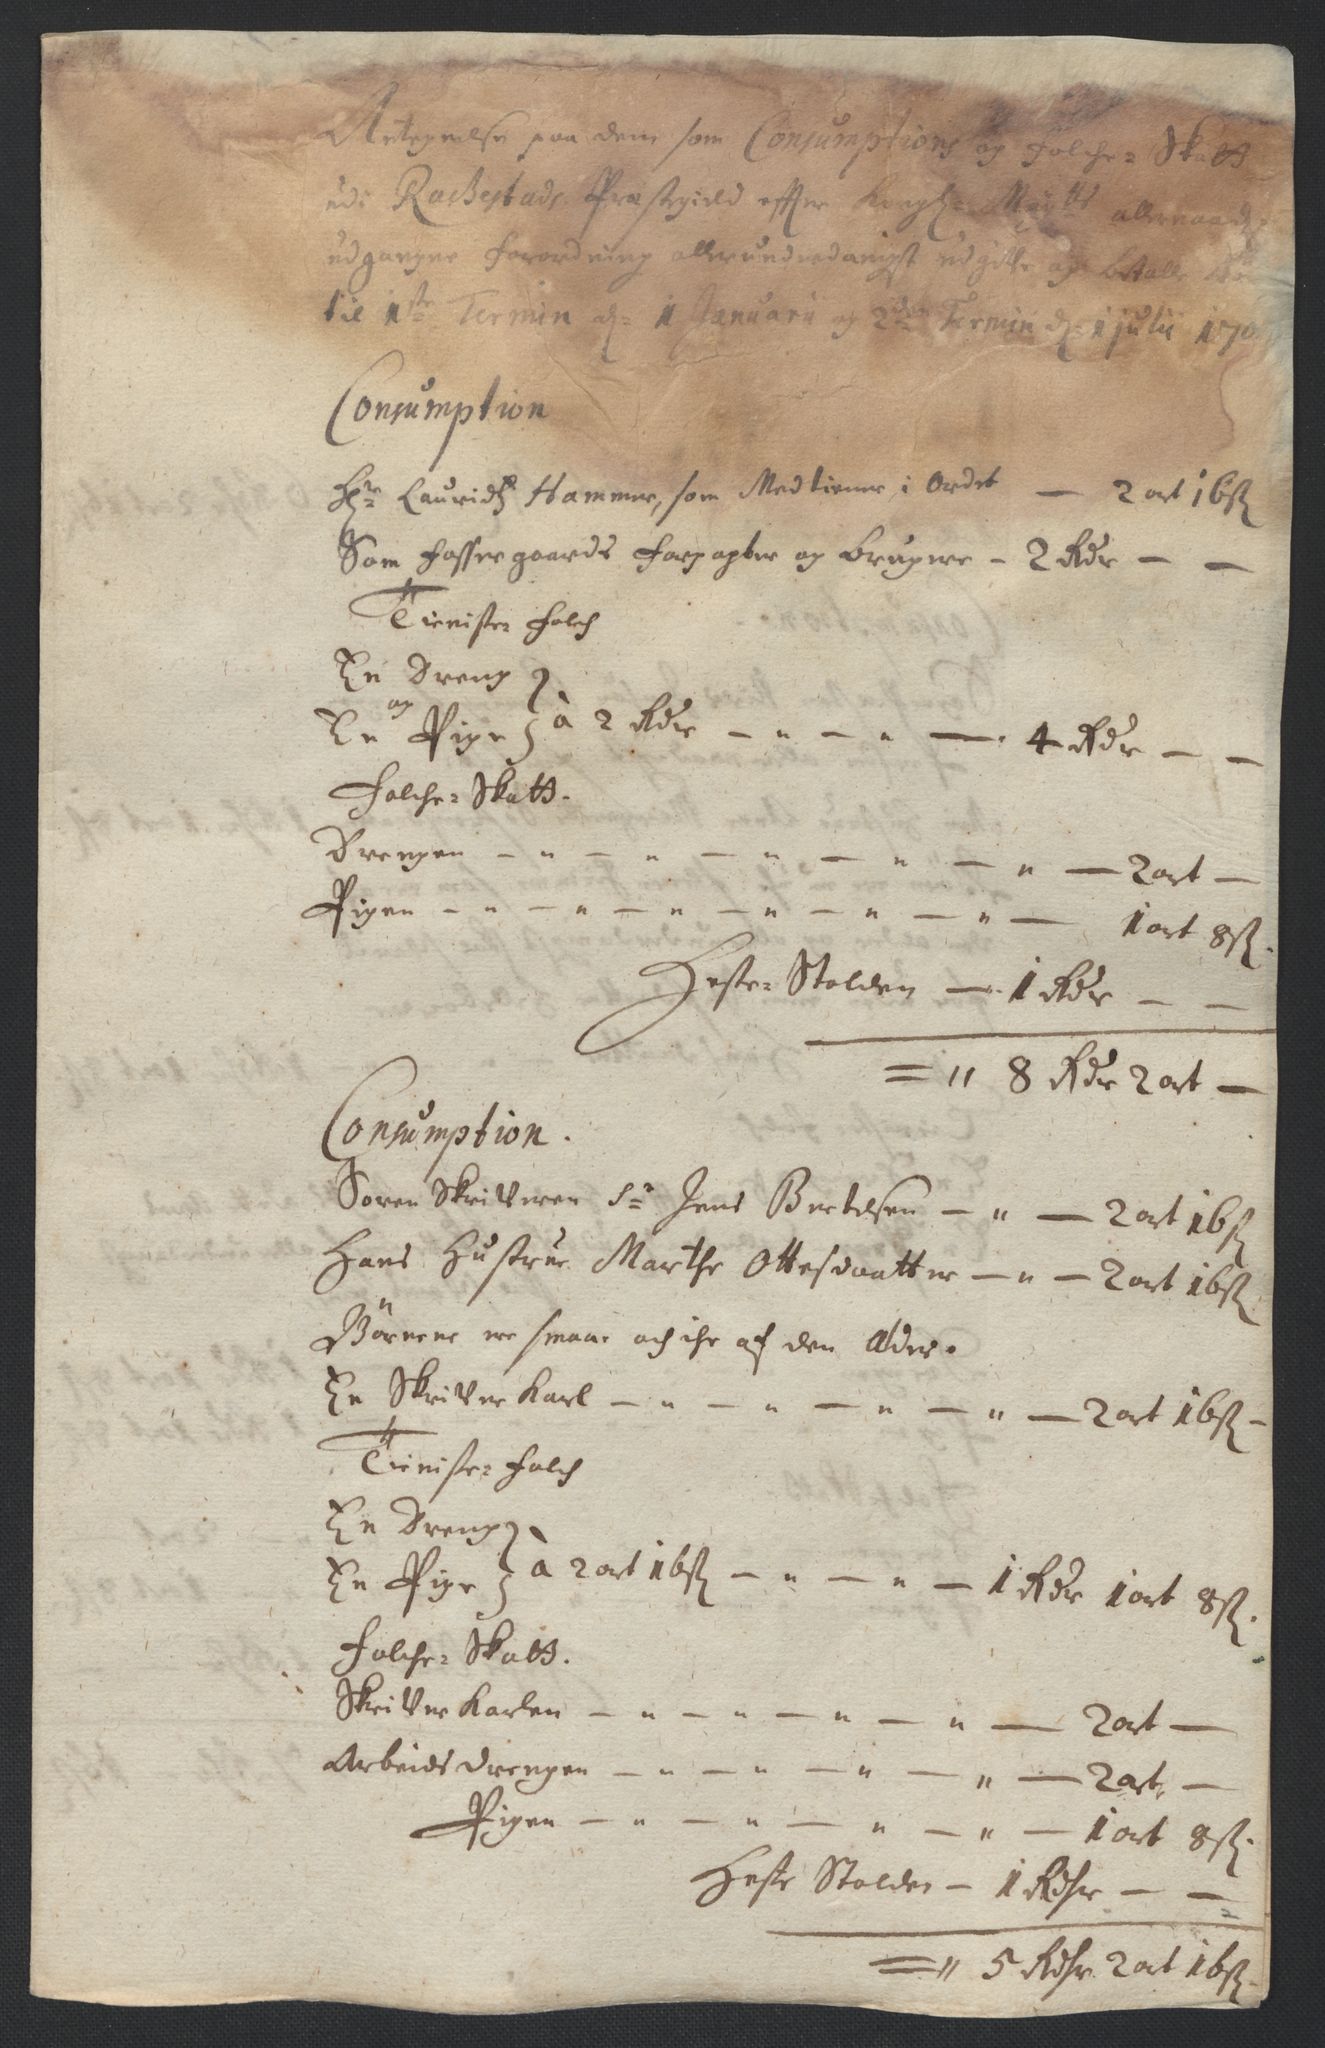 Antegnelse paa dem som Consumptions og Folche- Skatt
udi Rackestads Præstegield effter Kongl: Maÿtts allernaad:
udgangne Forordning allerunderdanigst udgifve og betalle bør
til 1ste Termin d: 1 Januarii og 2den Termin d: 1 julii 170
Consumption
Hr: Lauridtz Hammer, som Medtiener i Ordet — 2 ort 16 ß
Som Fossergaards Forpagter og Bruger – 2 Rdr – –
Tieniste- Folch
En Dreng
og
En Pige à 2 Rdr – " – " — 4 Rdr – –
Folche- Skatt.
Drengen – " – " – " – " – " — 2 ort –
Pigen – " – " – " – " – " – " — 1 ort 8 ß.
Heste- Stalden — 1 Rdr – –
= " 8 Rdr 2 ort –
Consumption.
Soren Skrifveren Sr: Jens Bertelsen – " — 2 ort 16 ß
Hans Hustrue Marthe Ottesdaatter – " – 2 ort 16 ß
Börnene ere smaae och iche af den Alder.
En Skrifver Karl – " – " – " – " — 2 ort 16 ß –
Tieniste- Folch
En Dreng
En Pige à 2 ort 16 ß – " – " – 1 Rdr 1 ort 8 ß.
Folche- Skatt.
Skrifver Karlen – " – " – " – " — 2 ort —
Arbeids Drengen – " – " – " – " — 2 ort –
Pigen – " – " – " – " – 1 ort 8 ß.
Heste Stalden – 1 Rdhr – –
= " 5 Rdhr 2 ort 16 ß